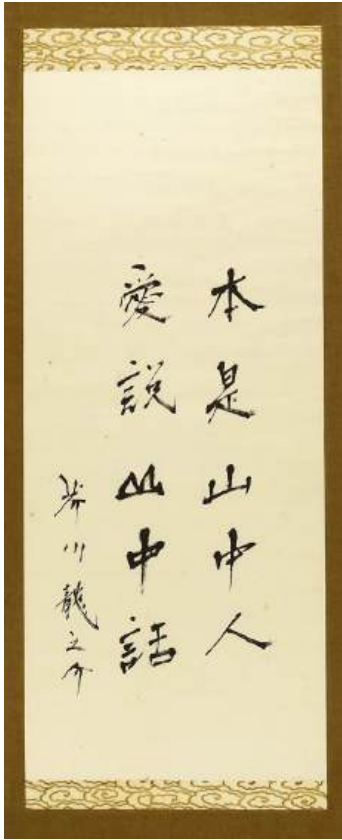 本是山中人
愛説山中話
芥川龍之介